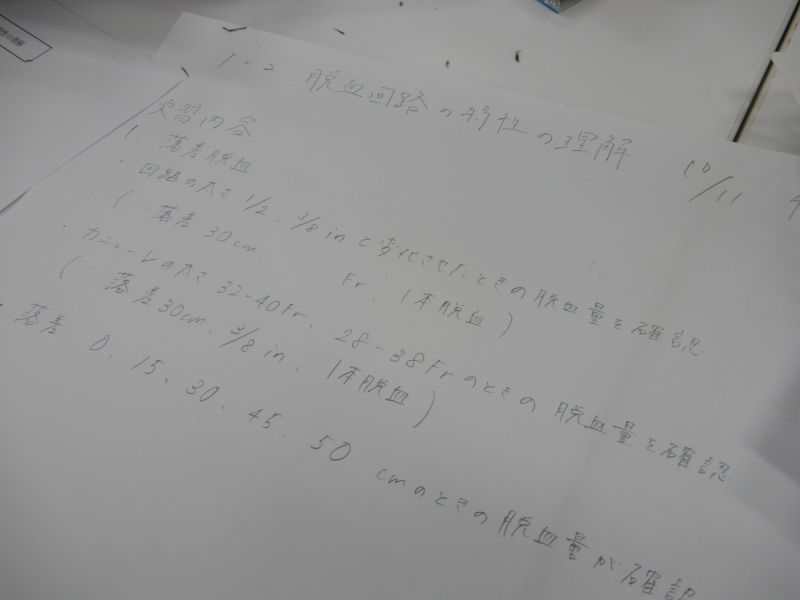 1-2 脱血回路の特性の理解 10/11
実習内容
1. 落差脱血
・回路の太さ 1/2、3/8 inと変化させたときの脱血量を確認
( 落差 30cm、 Fr、1本脱血 )
・カニューレの太さ 32-40Fr、28-38Frのときの脱血量を確認
( 落差30cm、3/8 in、1本脱血 )
・落差 0、15、30、45、50 cmのときの脱血量が確認
の理解